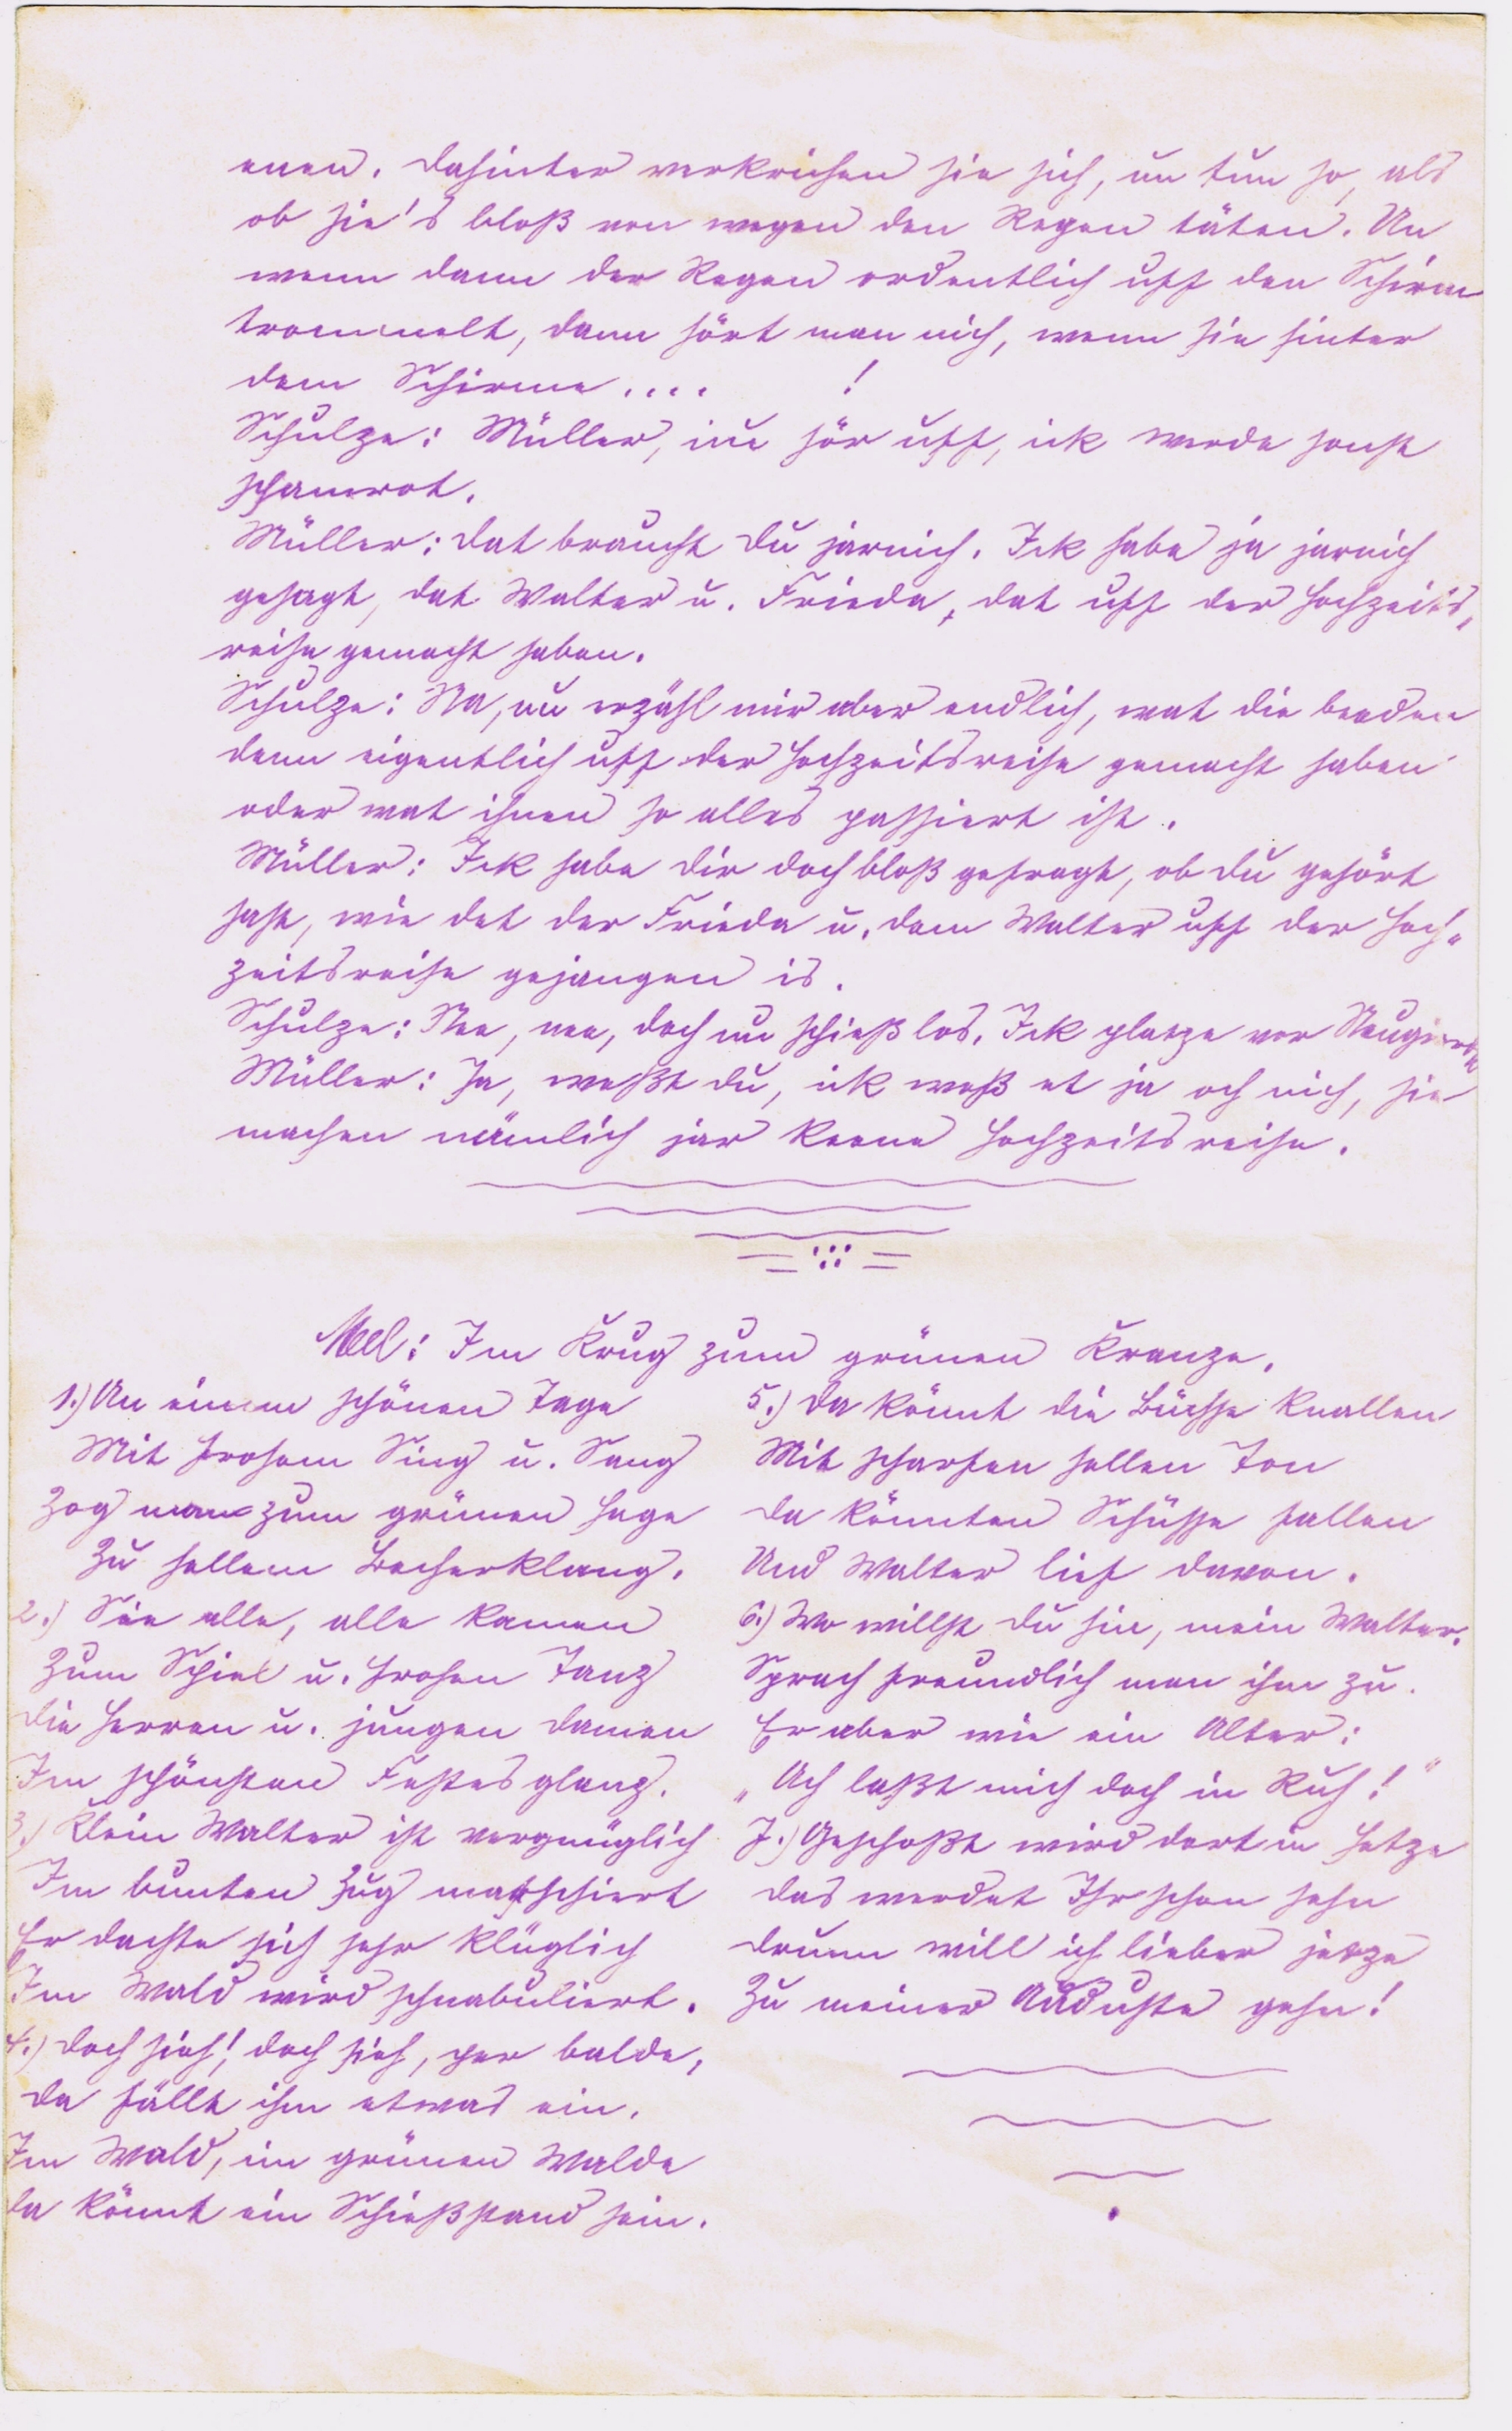 enen. Dahinter verkriechen sie sich, un tun so, als
ob sie's bloß von wegen den Regen täten. Un
wenn dann der Regen ordentlich uff den Schirm
trommelt, dann hört man nich, wenn sie hinter
dem Schirme .... !
Schulze: Müller, nu hör uff, ick werde sonst
schamrot.
Müller: Dat braucht du jarnich. Ick habe ja jarnich
gesagt, dat Walter u. Frieda, dat uff der Hochzeits-
reise gemacht haben.
Schulze: Na, nu erzähl mir aber endlich, wat die beeden
denn eigentlich uff der Hochzeitsreise gemacht haben
oder wat ihnen so alles passiert ist.
Müller: Ick habe dir doch bloß gefragt, ob du gehört
hast, wie det der Frieda u. dem Walter uff der Hoch-
zeitsreise gejangen is.
Schulze: Nee, nee, doch nu schieß los. Ick platze vor Neugierde
Müller: Ja, weßt du, ick weß et ja och nich, sie
machen nämlich jar keene Hochzeitsreise.
Mel: Im Krug zum grünen Kranze.
1.) An einem schönen Tage
Mit frohem Sing u. Sang
Zog man zum grünen Hage
Zu hellem Becherklang.
2.) Sie alle, alle kamen
Zum Spiel u. frohen Tanz
Die Herren u. jungen Damen
Im schönsten Festesglanz.
3.) Klein Walter ist vergnüglich
Im bunten Zug marschiert
Er dachte sich sehr klüglich
Im Wald wird schnabuliert.
4.) Doch sieh! doch sieh, gar balde,
Da fällt ihm etwas ein.
Im Wald, im grünen Walde
Da könnt ein Schießstand sein.
5.) Da könnt die Büchse knallen
Mit scharfen hellen Ton
Da könnten Schüsse fallen
Und Walter lief davon.
6.) Wo willst du hin, mein Walter.
Sprach freundlich man ihm zu.
Er aber wie ein Alter:
„Ach laßt mich doch in Ruh!"
7.) Geschoßt wird dort in Hetze
Das werdet Ihr schon sehn
Drumm will ich lieber jetze
Zu meiner Auduste gehn!